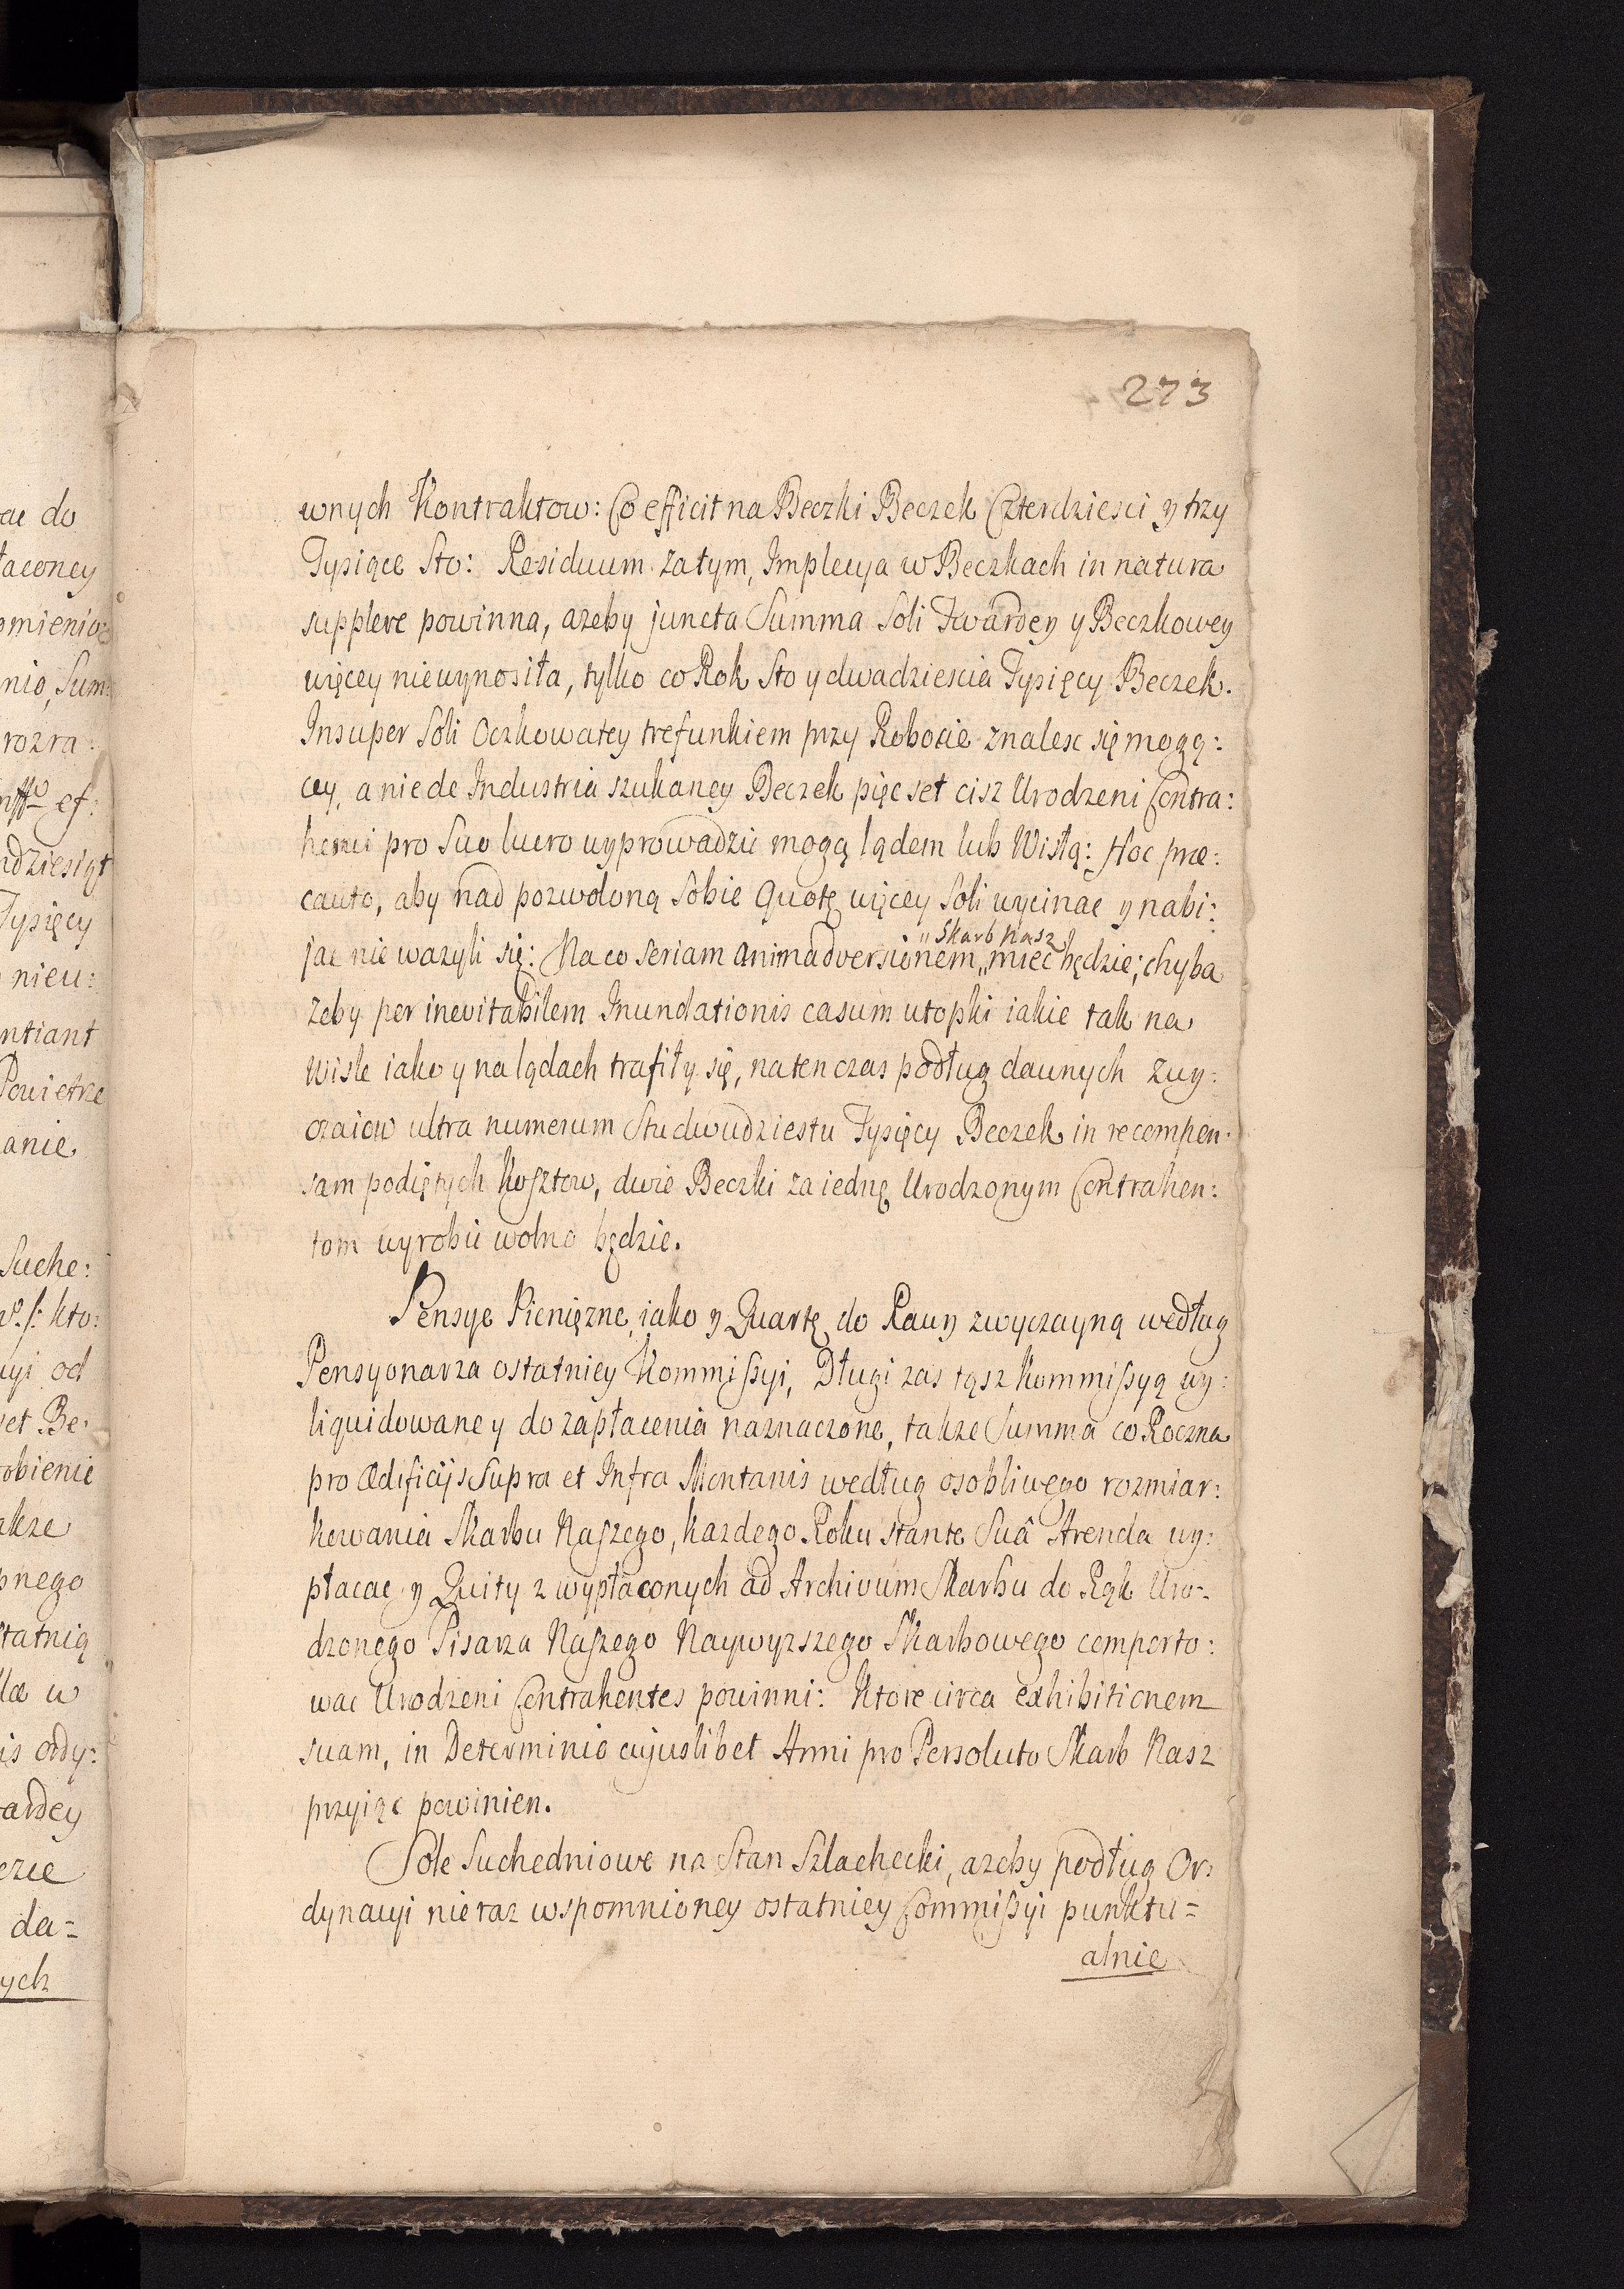 273
wnych Kontraktow: Co efficit na Beczki Beczek Czterdziesci y trzy
Tysiące Sto: Residuum zatym, Implecya w Beczkach in natura
supplere powinna, azeby juncta Summa Soli Twardey y Beczkowey
więcey niewynosiła, tylko co Rok Sto y dwadziescia Tysięcy Beczek.
Insuper Soli Oczkowatey trefunkiem przy Robocie znalesc się mogą:
cey, a nie de Industria szukaney Beczek pięc set cisz Urodzeni Contra:
henci pro Suo lucro wyprowadzic mogą lądem lub Wisłą: Hoc præ:
cauto, aby nad pozwoloną Sobie Quotę więcey Soli wycinac y nabi:
jac nie wazyli się: Na co seriam animadversionem „ miec będzie; chyba
„ Skarb Nasz
zeby per inevitabilem Inundationis casum utopki iakie tak na
Wisle iako y na lądach trafiły się, natenczas podług dawnych zwy:
czaiow ultra numerum Studwudziestu Tysięcy Beczek in recompen:
sam podiętych kosztow, dwie Beczki za iednę Urodzonym Contrahen:
tom wyrobic wolno będzie.
Pensye Pienięzne, iako y Quartę do Rawy zwyczayną według
Pensyonarza ostatniey Kommißyi, Długi zas tąsz Kommißyą wy:
liquidowane y do zapłacenia naznaczone, takze Summa co Roczna
pro Ædificijs Supra et Infra Montanis według osobliwego rozmiar:
kowania Skarbu Naszego, kazdego Roku stante Suâ Arenda wy:
płacac y Quity z wypłaconych ad Archivum Skarbu do Rąk Uro:
dzonego Pisarza Naszego Naywyzszego Skarbowego comporto:
wac Urodzeni Contrahentes powinni: Ktore circa exhibitionem
suam, in Determinio cujuslibet Anni pro Persoluto Skarb Nasz
przyiąc powinien.
Sole Suchedniowe na Stan Szlachecki, azeby podług Or:
dynacyi nieraz wspomnioney ostatniey Commißyi punktu=
alnie